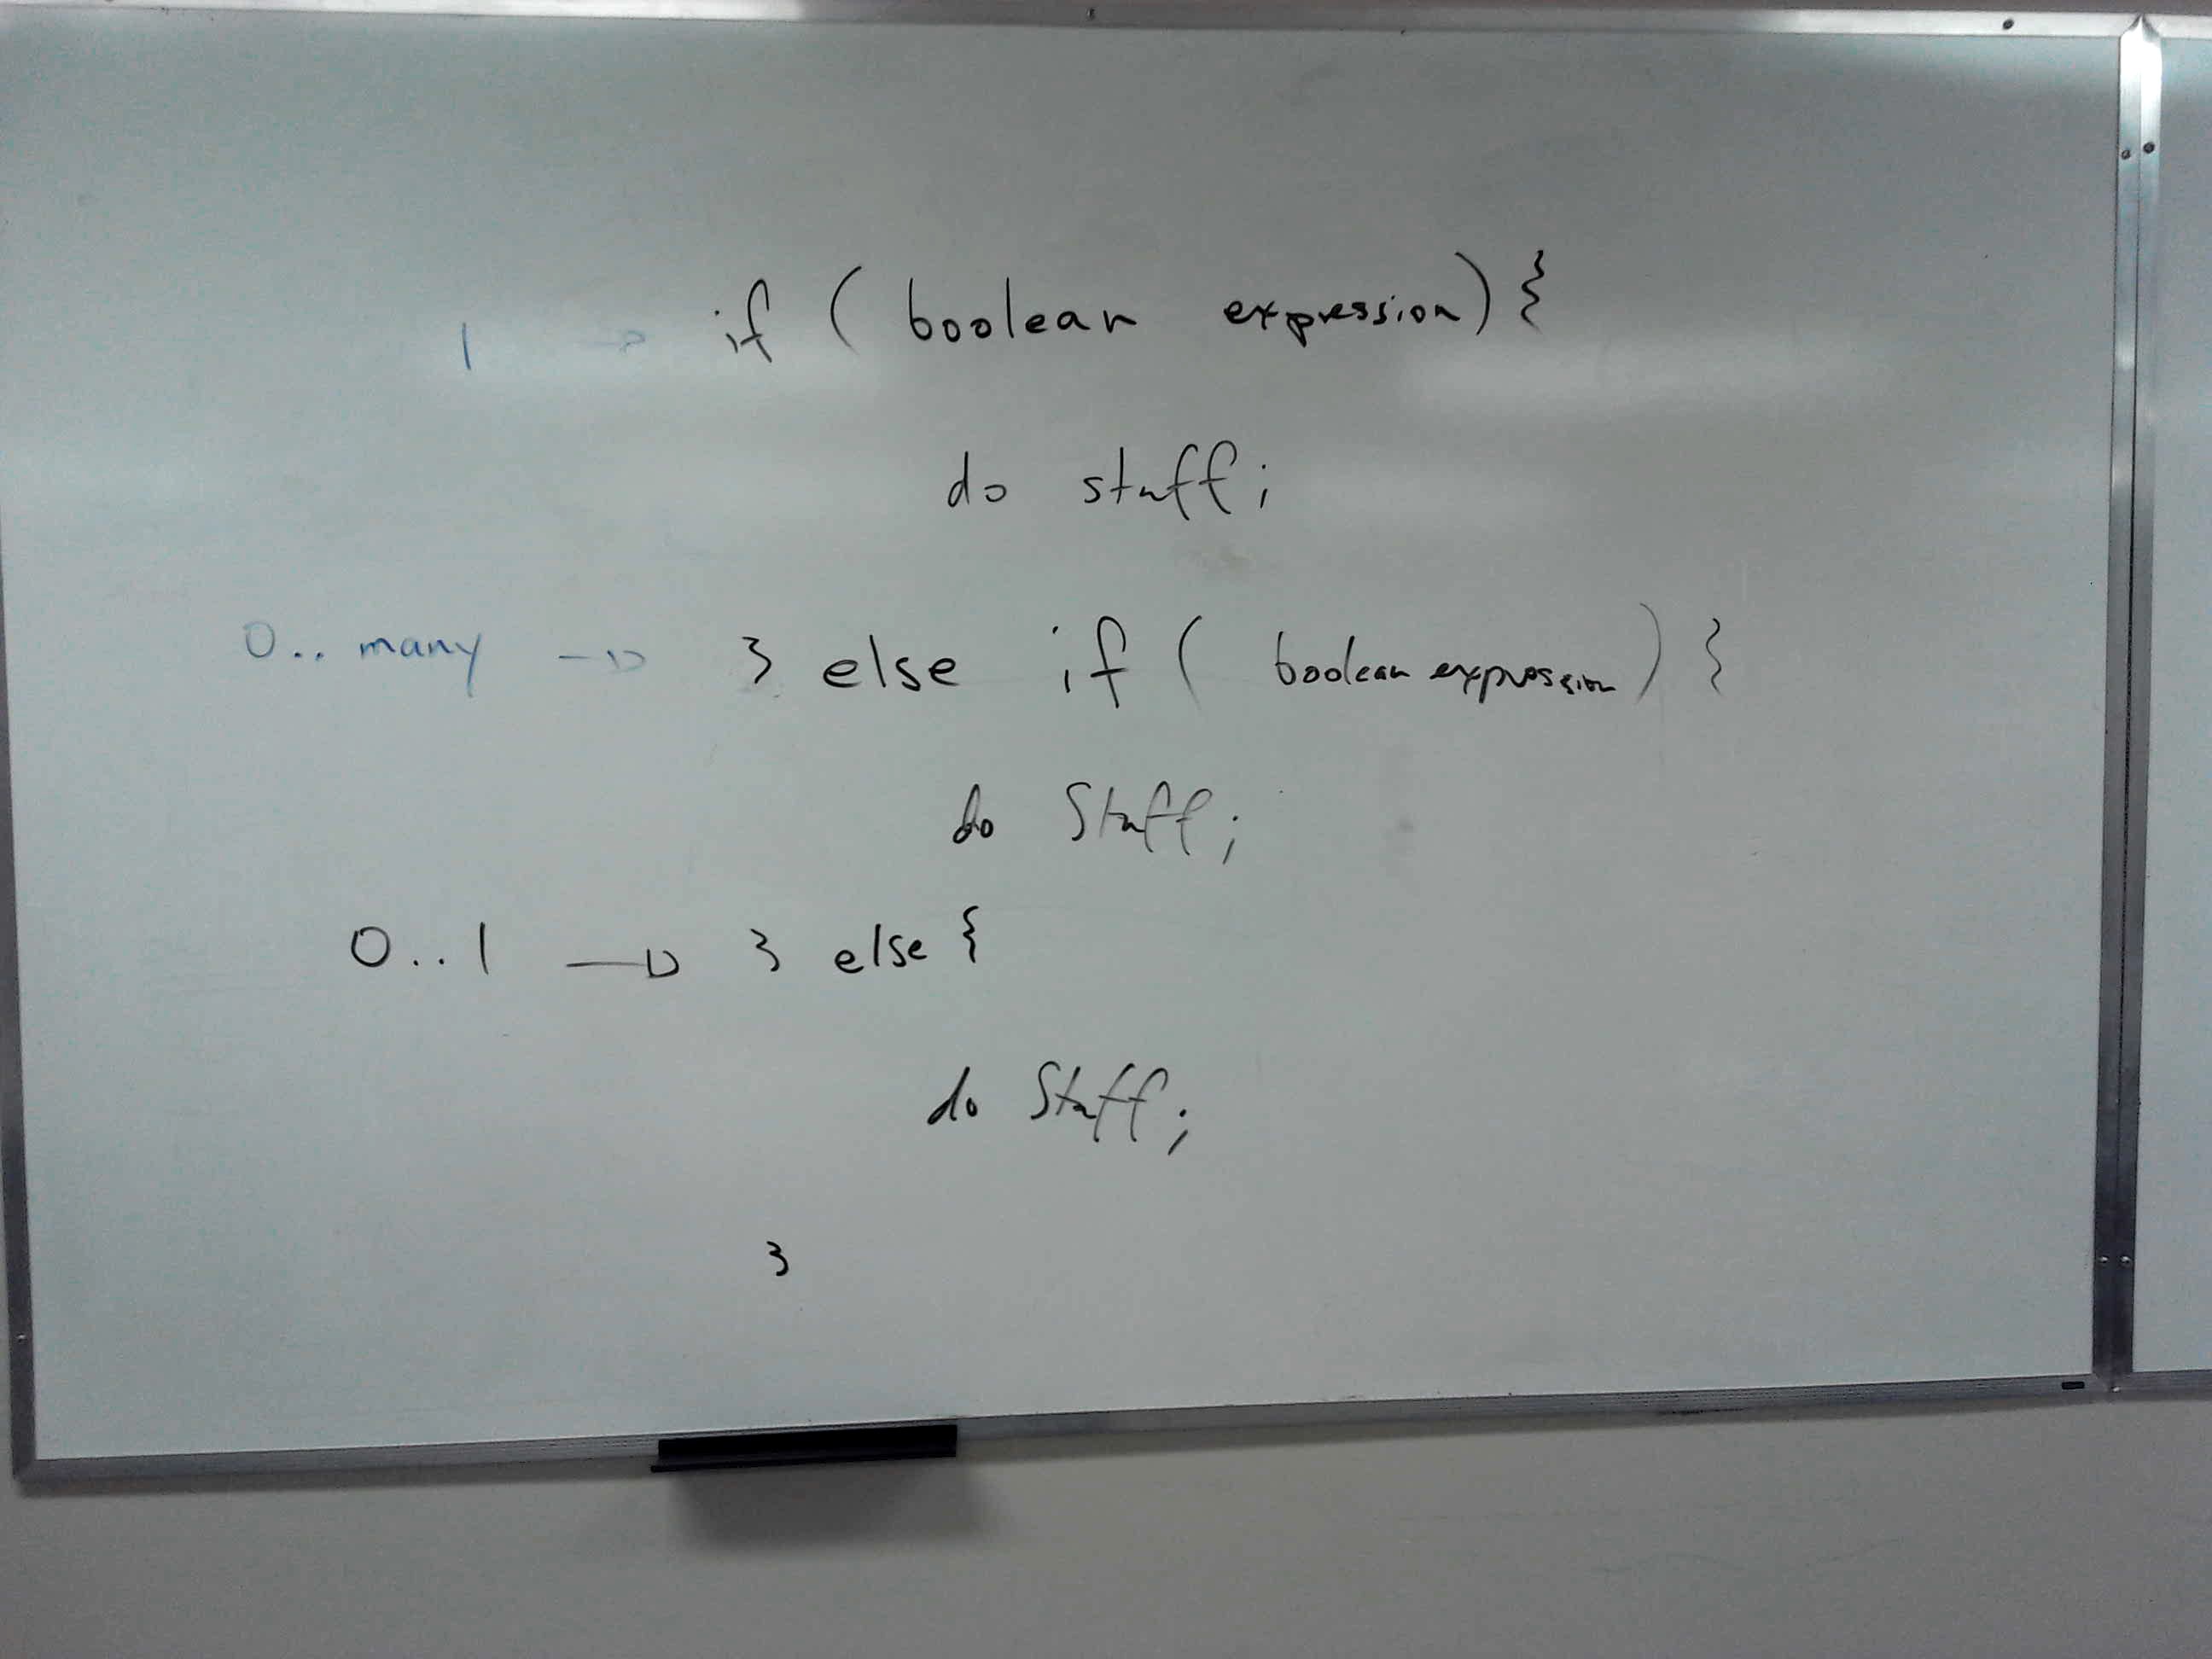 1 → if ( boolean expression) {
do stuff;
0.. many → } else if ( boolean expression) {
do Stuff;
0..1 → } else {
do Stuff;
}